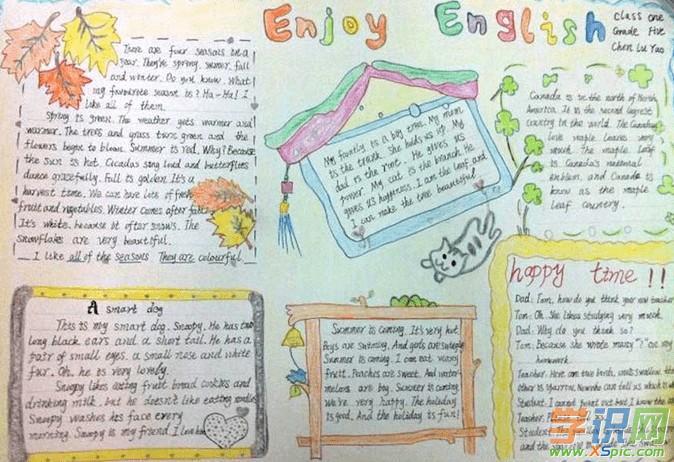 Enjoy English
Class one
Grade Five
Chen Lu Yao
There are four seasons in a
year. They're spring, summer, fall
and winter. Do you know. What
my favourite season is? Ha-Ha! I
like all of them.
Spring is green. The weather gets warmer and
warmer. The trees and grass turns green and the
flowers begin to bloom. Summer is red. Why? Because
the sun is hot. Cicadas sing loud and butterflies
dance gracefully. Fall is golden. It's a
harvest time. We can have lots of fresh
fruit and vegetables. Winter comes after fall.
It's white. because it often snows. The
snowflakes are very beautiful.
I like all of the seasons They are colourful.
My family is a big tree. My mum
is the trunk. She holds us up. My
dad is the root. He gives us
power. My cat is the branch. He
gives us happiness. I am the leaf and
I can make the tree beautiful.
Canada is in the north of North
America. It is the second largest
country in the world. The Canadian
love maple leaves very
much. The maple leaf
is Canada's national
emblem, and Canada is
know as the maple
leaf country.
A smart dog
This is my smart dog. Snoopy. He has two
long black ears and a short tail. He has a
pair of small eyes. a small nose and white
fur. Oh, he is very lovely.
Snoopy likes eating fruit bread cookies and
drinking milk. but he doesn't like eating noodles
Snoopy washes his face every
morning. Snoopy is my friend. I love him
Summer is coming. It's very hot.
Boys are swimming. And girls are
Summer is coming. I can eat many
fruit. Peaches are sweet. And water-
melons are big. Summer is coming.
We're very happy. The holiday
is good. And the holiday is fun!
happy time !!
Dad: Tom, how do you think your new teacher
Tom: Oh. She likes studying very much.
Dad: Why do you think so?
Tom: Because she wrote many "?" on my
homework.
Teacher: Here are two birds, one's swallow. the
other is sparrow. Now who can tell us which is
Student: I cannot point out but I know the
Teacher:
Student:
and the
学识网
www.XSpic.com